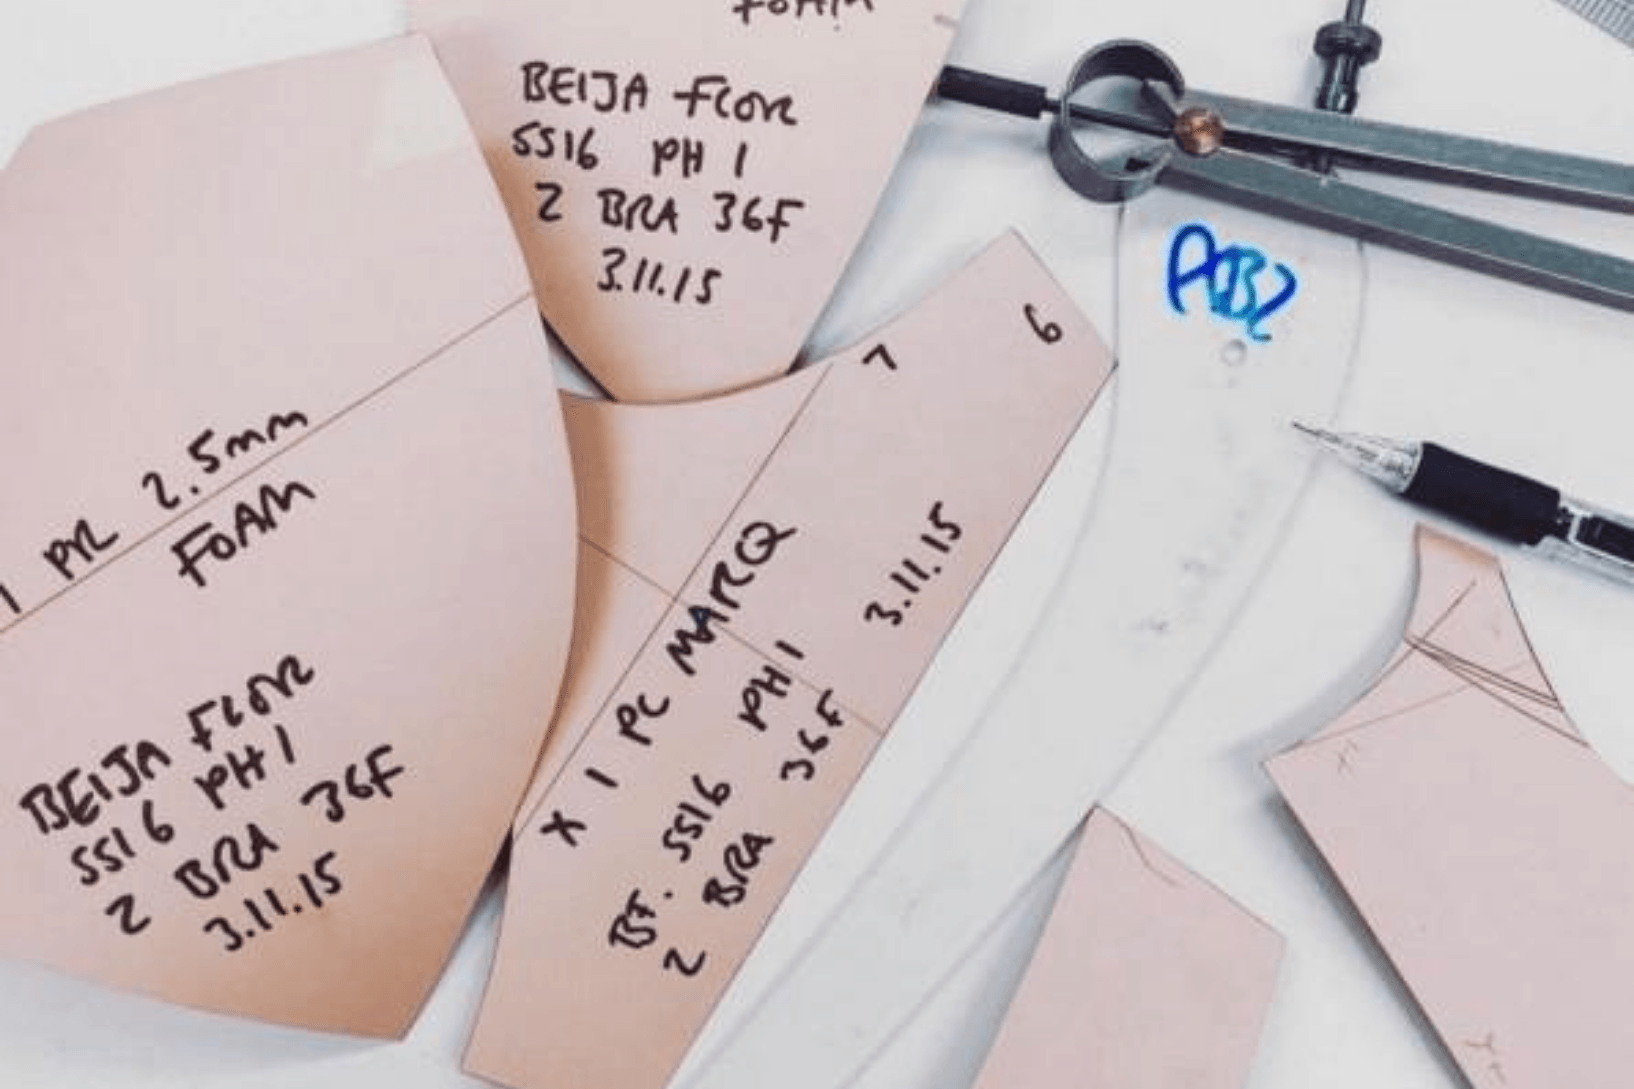 FOAM
BEIJA FLOR
SS16 PH 1
Z BRA 36F
3.11.15
1 PR 2.5mm
FOAM
BEIJA FLOR
SS16 PH 1
Z BRA 36F
3.11.15
7
6
X 1 PC MARQ
BF. SS16 PH 1
Z BRA 36F
3.11.15